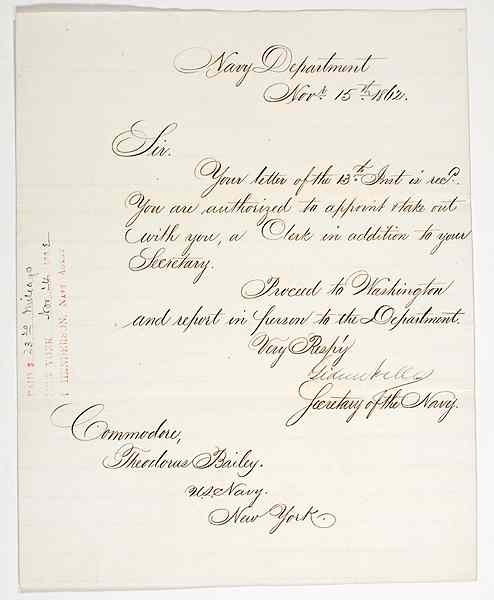 Navy Department
Novr. 15th 1862.
Sir.
Your letter of the 13th Inst is recd.
You are authorized to appoint & take out
with you, a Clerk in addition to your
Secretary.
Proceed to Washington
and report in person to the Department.
Very Resp'y
Gideon Welles
Secretary of the Navy.
Commodore,
Theodorus Bailey.
U.S. Navy.
New York.
PAID $ 23.20 Mileage
NEW YORK Nov 24
HENDERSON, NAVY AGENT